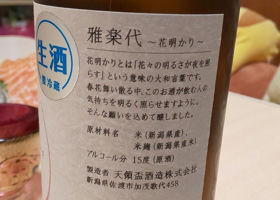 生酒
要冷蔵
雅楽代 〜花明かり〜
花明かりとは「花々の明るさが夜を照
らす」という意味の大和言葉です。
春花舞い散る中、このお酒が飲む人の
気持ちを明るく照らせますように。
そんな願いを込めて醸しました。
原材料名 米(新潟県産)、
米麹(新潟県産米)
アルコール分 15度(原酒)
製造者 天領盃酒造株式会社
新潟県佐渡市加茂歌代458